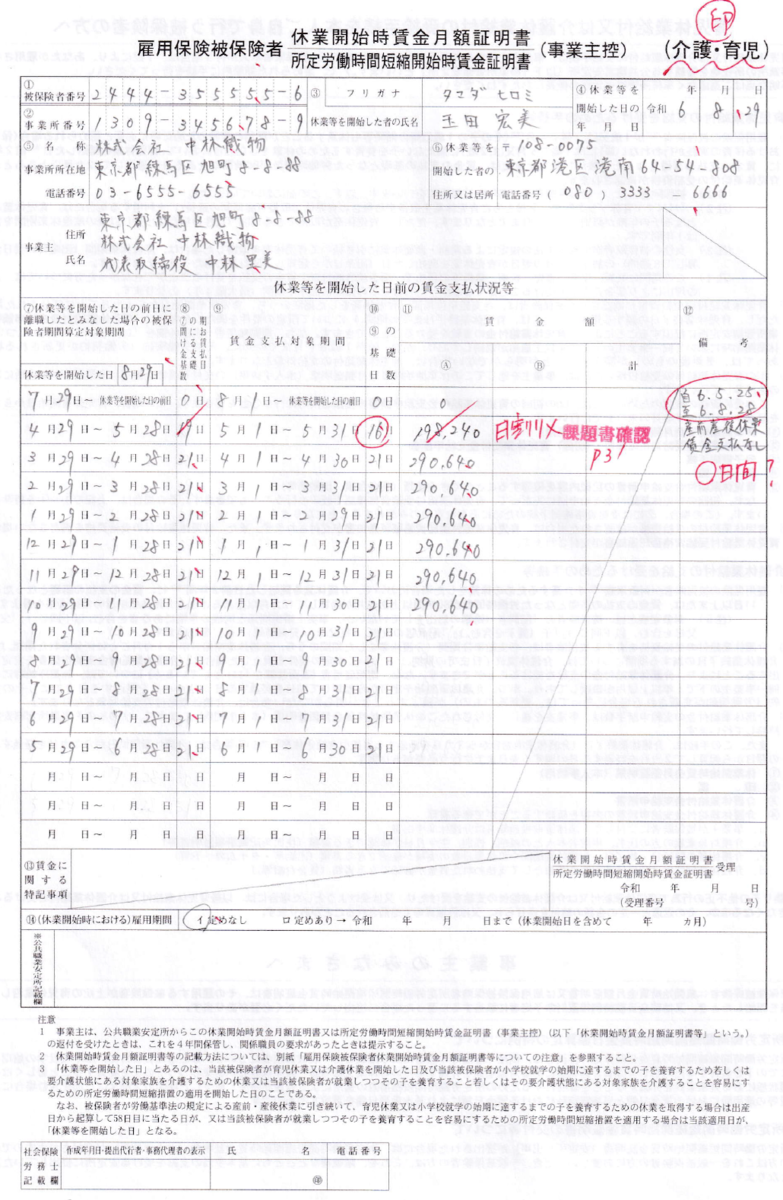 印
雇用保険被保険者 休業開始時賃金月額証明書 (事業主控) (介護・育児)
所定労働時間短縮開始時賃金証明書
① 被保険者番号 2444-355555-6 ③ フリガナ タマダ ヒロミ ④休業等を開始した日の年月日 令和 6年 8月 29日
② 事業所番号 1309-345678-9 休業等を開始した者の氏名 玉田 宏美
⑤ 名称 株式会社 中林織物 ⑥休業等を開始した者の住所又は居所 〒108-0075
事業所所在地 東京都練馬区旭町8-8-88 東京都港区港南64-54-808
電話番号 03-6555-6555 電話番号 (080) 3333-6666
事業主 住所 東京都練馬区旭町8-8-88
株式会社 中林織物
氏名 代表取締役 中林里美
休業等を開始した日前の賃金支払状況等
⑦休業等を開始した日の前日に離職したとみなした場合の被保険者期間算定対象期間 ⑧⑦の期間における賃金支払基礎日数 ⑨賃金支払対象期間 ⑩⑨の基礎日数 ⑪賃金額 Ⓐ Ⓑ 計 ⑫備考
休業等を開始した日 8月29日
7月29日~休業等を開始した日の前日 0日 8月1日~休業等を開始した日の前日 0日 0 自6.5.25
至6.8.28
4月29日~5月28日 17日 5月1日~5月31日 16日 198,240 日割り× 課題書確認 P31 産前産後休業
賃金支払なし
3月29日~4月28日 21日 4月1日~4月30日 21日 290,640 〇日間?
2月29日~3月28日 21日 3月1日~3月31日 21日 290,640
1月29日~2月28日 21日 2月1日~2月29日 21日 290,640
12月29日~1月28日 21日 1月1日~1月31日 21日 290,640
11月29日~12月28日 21日 12月1日~12月31日 21日 290,640
10月29日~11月28日 21日 11月1日~11月30日 21日 290,640
9月29日~10月28日 21日 10月1日~10月31日 21日
8月29日~9月28日 21日 9月1日~9月30日 21日
7月29日~8月28日 21日 8月1日~8月31日 21日
6月29日~7月28日 21日 7月1日~7月31日 21日
5月29日~6月28日 21日 6月1日~6月30日 21日
月 日~ 月 日 日 月 日~ 月 日 日
月 日~ 月 日 日 月 日~ 月 日 日
月 日~ 月 日 日 月 日~ 月 日 日
⑬賃金に関する特記事項 休業開始時賃金月額証明書 受理
所定労働時間短縮開始時賃金証明書
令和 年 月 日
(受理番号 号)
⑭(休業開始時における)雇用期間 イ 定めなし ロ 定めあり→令和 年 月 日まで(休業開始日を含めて 年 カ月)
※公共職業安定所記載欄
注意
1 事業主は、公共職業安定所からこの休業開始時賃金月額証明書又は所定労働時間短縮開始時賃金証明書(事業主控)(以下「休業開始時賃金月額証明書等」という。)
の返付を受けたときは、これを4年間保管し、関係職員の要求があったときは提示すること。
2 休業開始時賃金月額証明書等の記載方法については、別紙「雇用保険被保険者休業開始時賃金月額証明書等についての注意」を参照すること。
3 「休業等を開始した日」とあるのは、当該被保険者が育児休業又は介護休業を開始した日及び当該被保険者が小学校就学の始期に達するまでの子を養育するため若しくは
要介護状態にある対象家族を介護するための休業又は当該被保険者が就業しつつその子を養育すること若しくはその要介護状態にある対象家族を介護することを容易にす
るための所定労働時間短縮措置の適用を開始した日のことである。
なお、被保険者が労働基準法の規定による産前・産後休業に引き続いて、育児休業又は小学校就学の始期に達するまでの子を養育するための休業を取得する場合は出産
日から起算して58日目に当たる日が、又は当該被保険者が就業しつつその子を養育することを容易にするための所定労働時間短縮措置を適用する場合は当該適用日が、
「休業等を開始した日」となる。
社会保険労務士記載欄 作成年月日・提出代行者・事務代理者の表示 氏名 電話番号
㊞